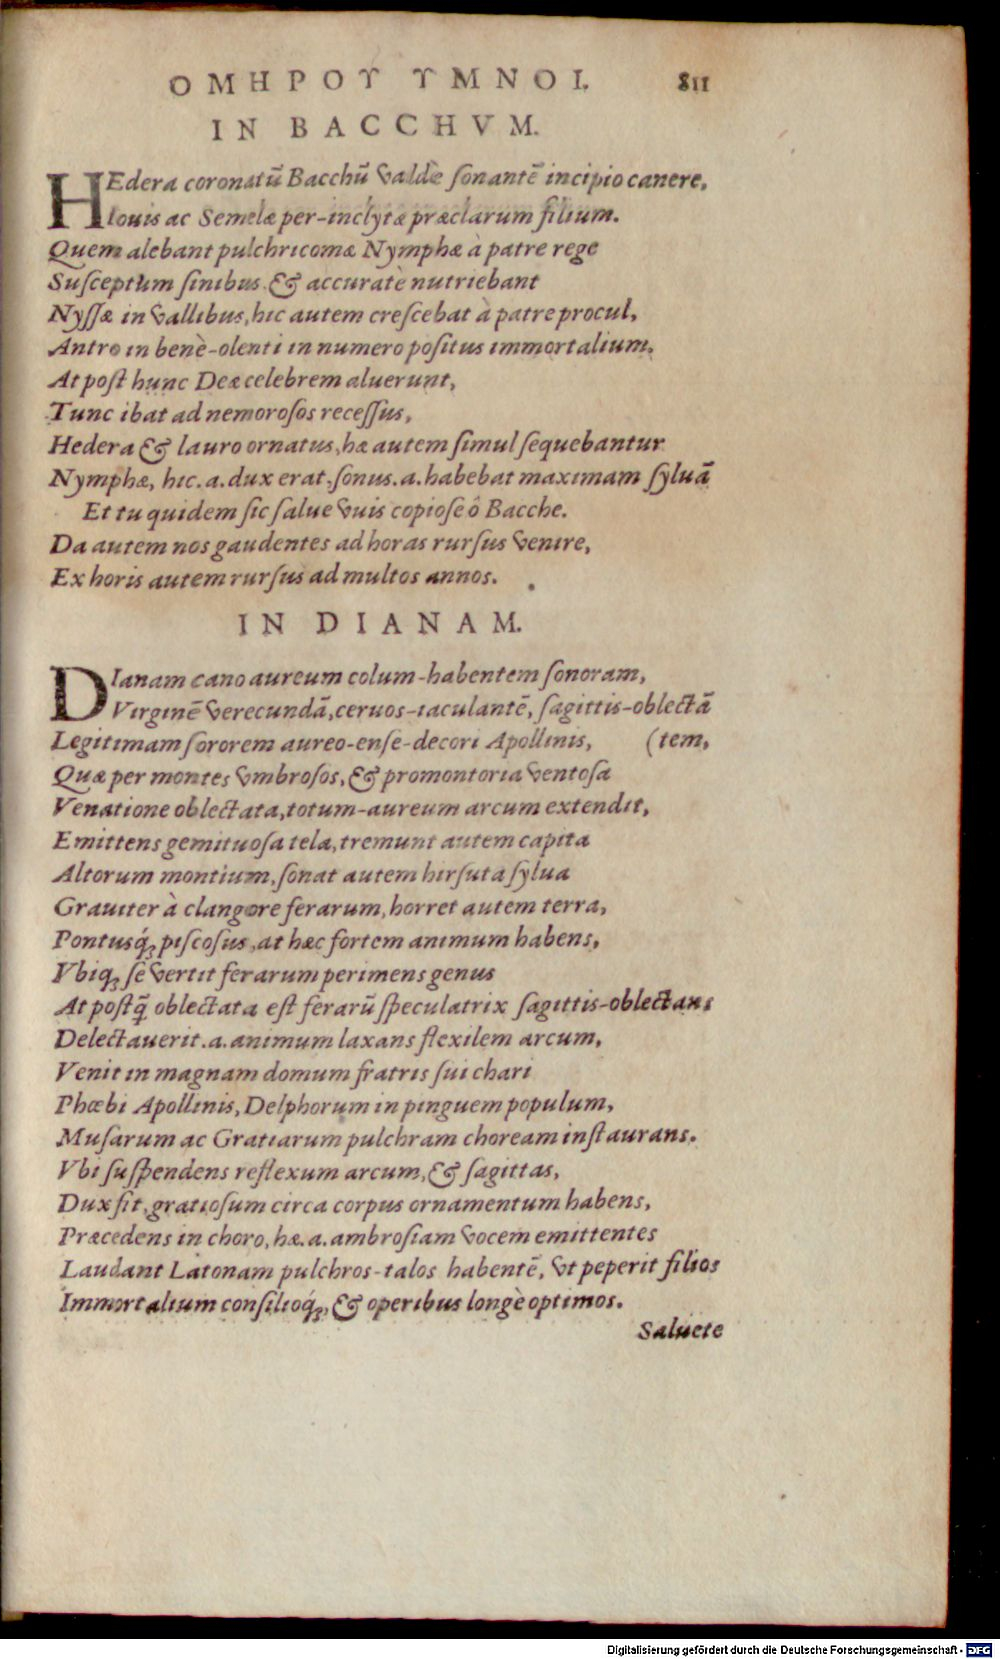 ΟΜΗΡΟΥ ΥΜΝΟΙ. 811
IN BACCHVM.
HEdera coronatũ Bacchũ valdè ſonantẽ incipio canere,
Iouis ac Semelæ per-inclytæ præclarum filium.
Quem alebant pulchricomæ Nymphæ à patre rege
Suſceptum ſinibus & accuratè nutriebant
Nyſſæ in vallibus, hic autem creſcebat à patre procul,
Antro in benè-olenti in numero poſitus immortalium.
At poſt hunc Deæ celebrem aluerunt,
Tunc ibat ad nemoroſos receſſus,
Hedera & lauro ornatus, hæ autem ſimul ſequebantur
Nymphæ, hic .a. dux erat, ſonus .a. habebat maximam ſyluã
Et tu quidem ſic ſalue vuis copioſe ô Bacche.
Da autem nos gaudentes ad horas rurſus venire,
Ex horis autem rurſus ad multos annos.
IN DIANAM.
DIanam cano aureum colum-habentem ſonoram,
Virginẽ verecundã, ceruos-iaculantẽ, ſagittis-oblectã
Legitimam ſororem aureo-enſe-decori Apollinis, (tem,
Quæ per montes vmbroſos, & promontoria ventoſa
Venatione oblectata, totum-aureum arcum extendit,
Emittens gemituoſa tela, tremunt autem capita
Altorum montium, ſonat autem hirſuta ſylua
Grauiter à clangore ferarum, horret autem terra,
Pontusq́; piſcoſus, at hæc fortem animum habens,
Vbiq; ſe vertit ferarum perimens genus
At poſtq̃ oblectata eſt ferarũ ſpeculatrix ſagittis-oblectans
Delectauerit .a. animum laxans flexilem arcum,
Venit in magnam domum fratris ſui chari
Phœbi Apollinis, Delphorum in pinguem populum,
Muſarum ac Gratiarum pulchram choream inſtaurans.
Vbi ſuſpendens reflexum arcum, & ſagittas,
Dux ſit, gratioſum circa corpus ornamentum habens,
Præcedens in choro, hæ .a. ambroſiam vocem emittentes
Laudant Latonam pulchros-talos habentẽ, vt peperit filios
Immortalium conſilioq́;, & operibus longè optimos.
Saluete
Digitalisierung gefördert durch die Deutsche Forschungsgemeinschaft - DFG